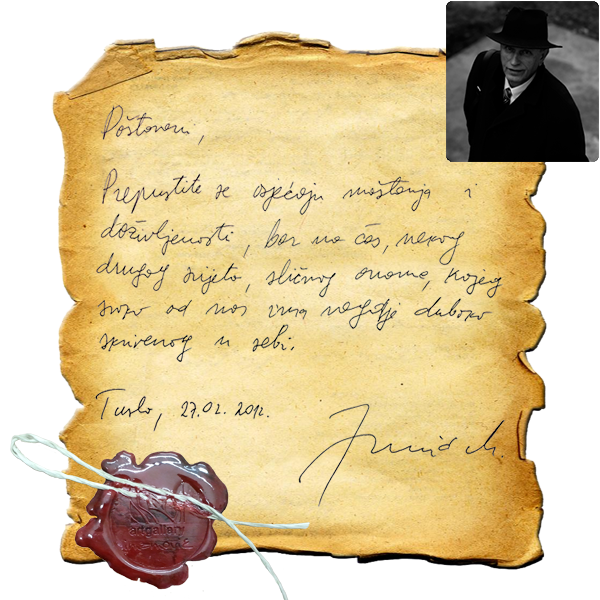 Poštovani,
Prepustite se osjećaju maštanja i
doživljenosti, bar na čas, nekog
drugog svijeta, sličnog onome, kojeg
svako od nas ima negdje duboko
skrivenog u sebi.
Tuzla, 27.02.2012.
artgallery